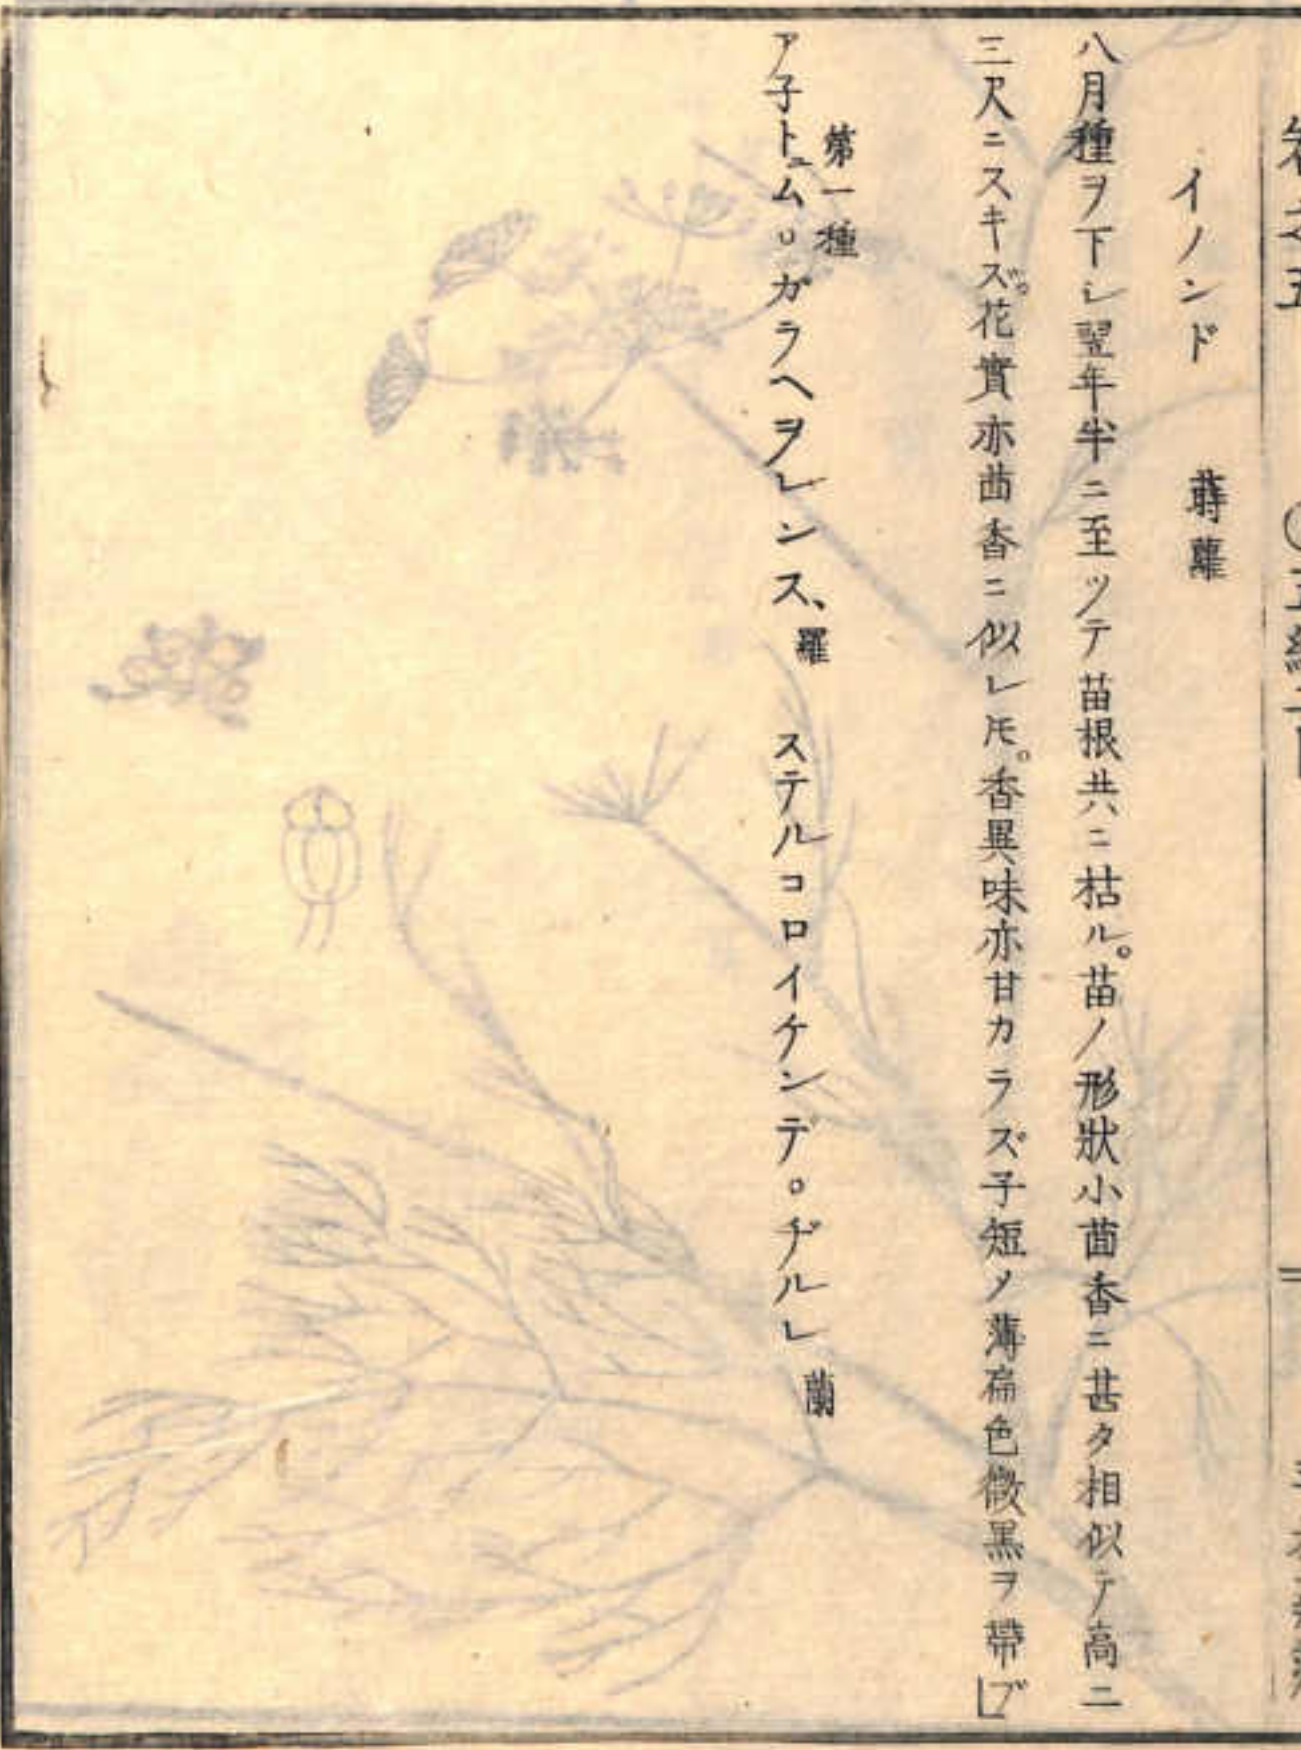 イノンド 蒔蘿
八月種ヲ下シ翌年半ニ至ツテ苗根共ニ枯ル。苗ノ形狀小茴香ニ甚タ相似テ高二
三尺ニスキズ。花實亦茴香ニ似レ𪜈。香異味亦甘カラズ子短ノ薄扁色微黑ヲ帶ブ
第一種
ア子トュム。ガラヘヲレンス、羅 ステルコロイケンデ。ヂルレ 蘭